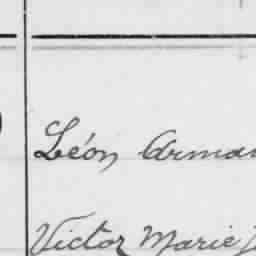 Léon Arman
Victor Marie